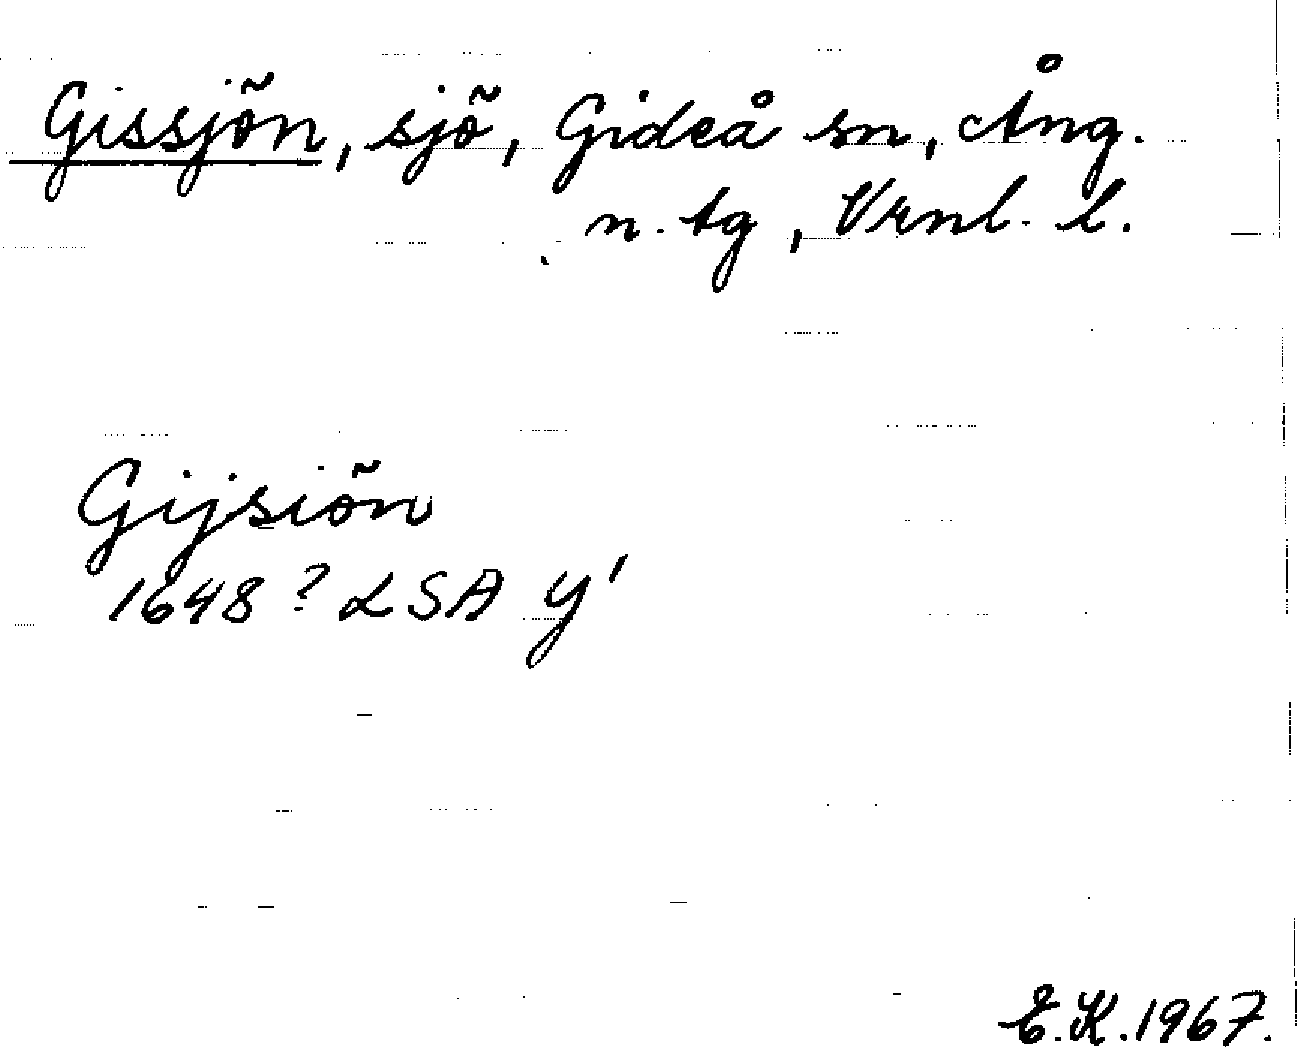 Gissjön, sjö, Gideå sn, Ång.
n. tg, Vrnl. l.
Gijsiön
1648? LSA Y¹
E.K. 1967.